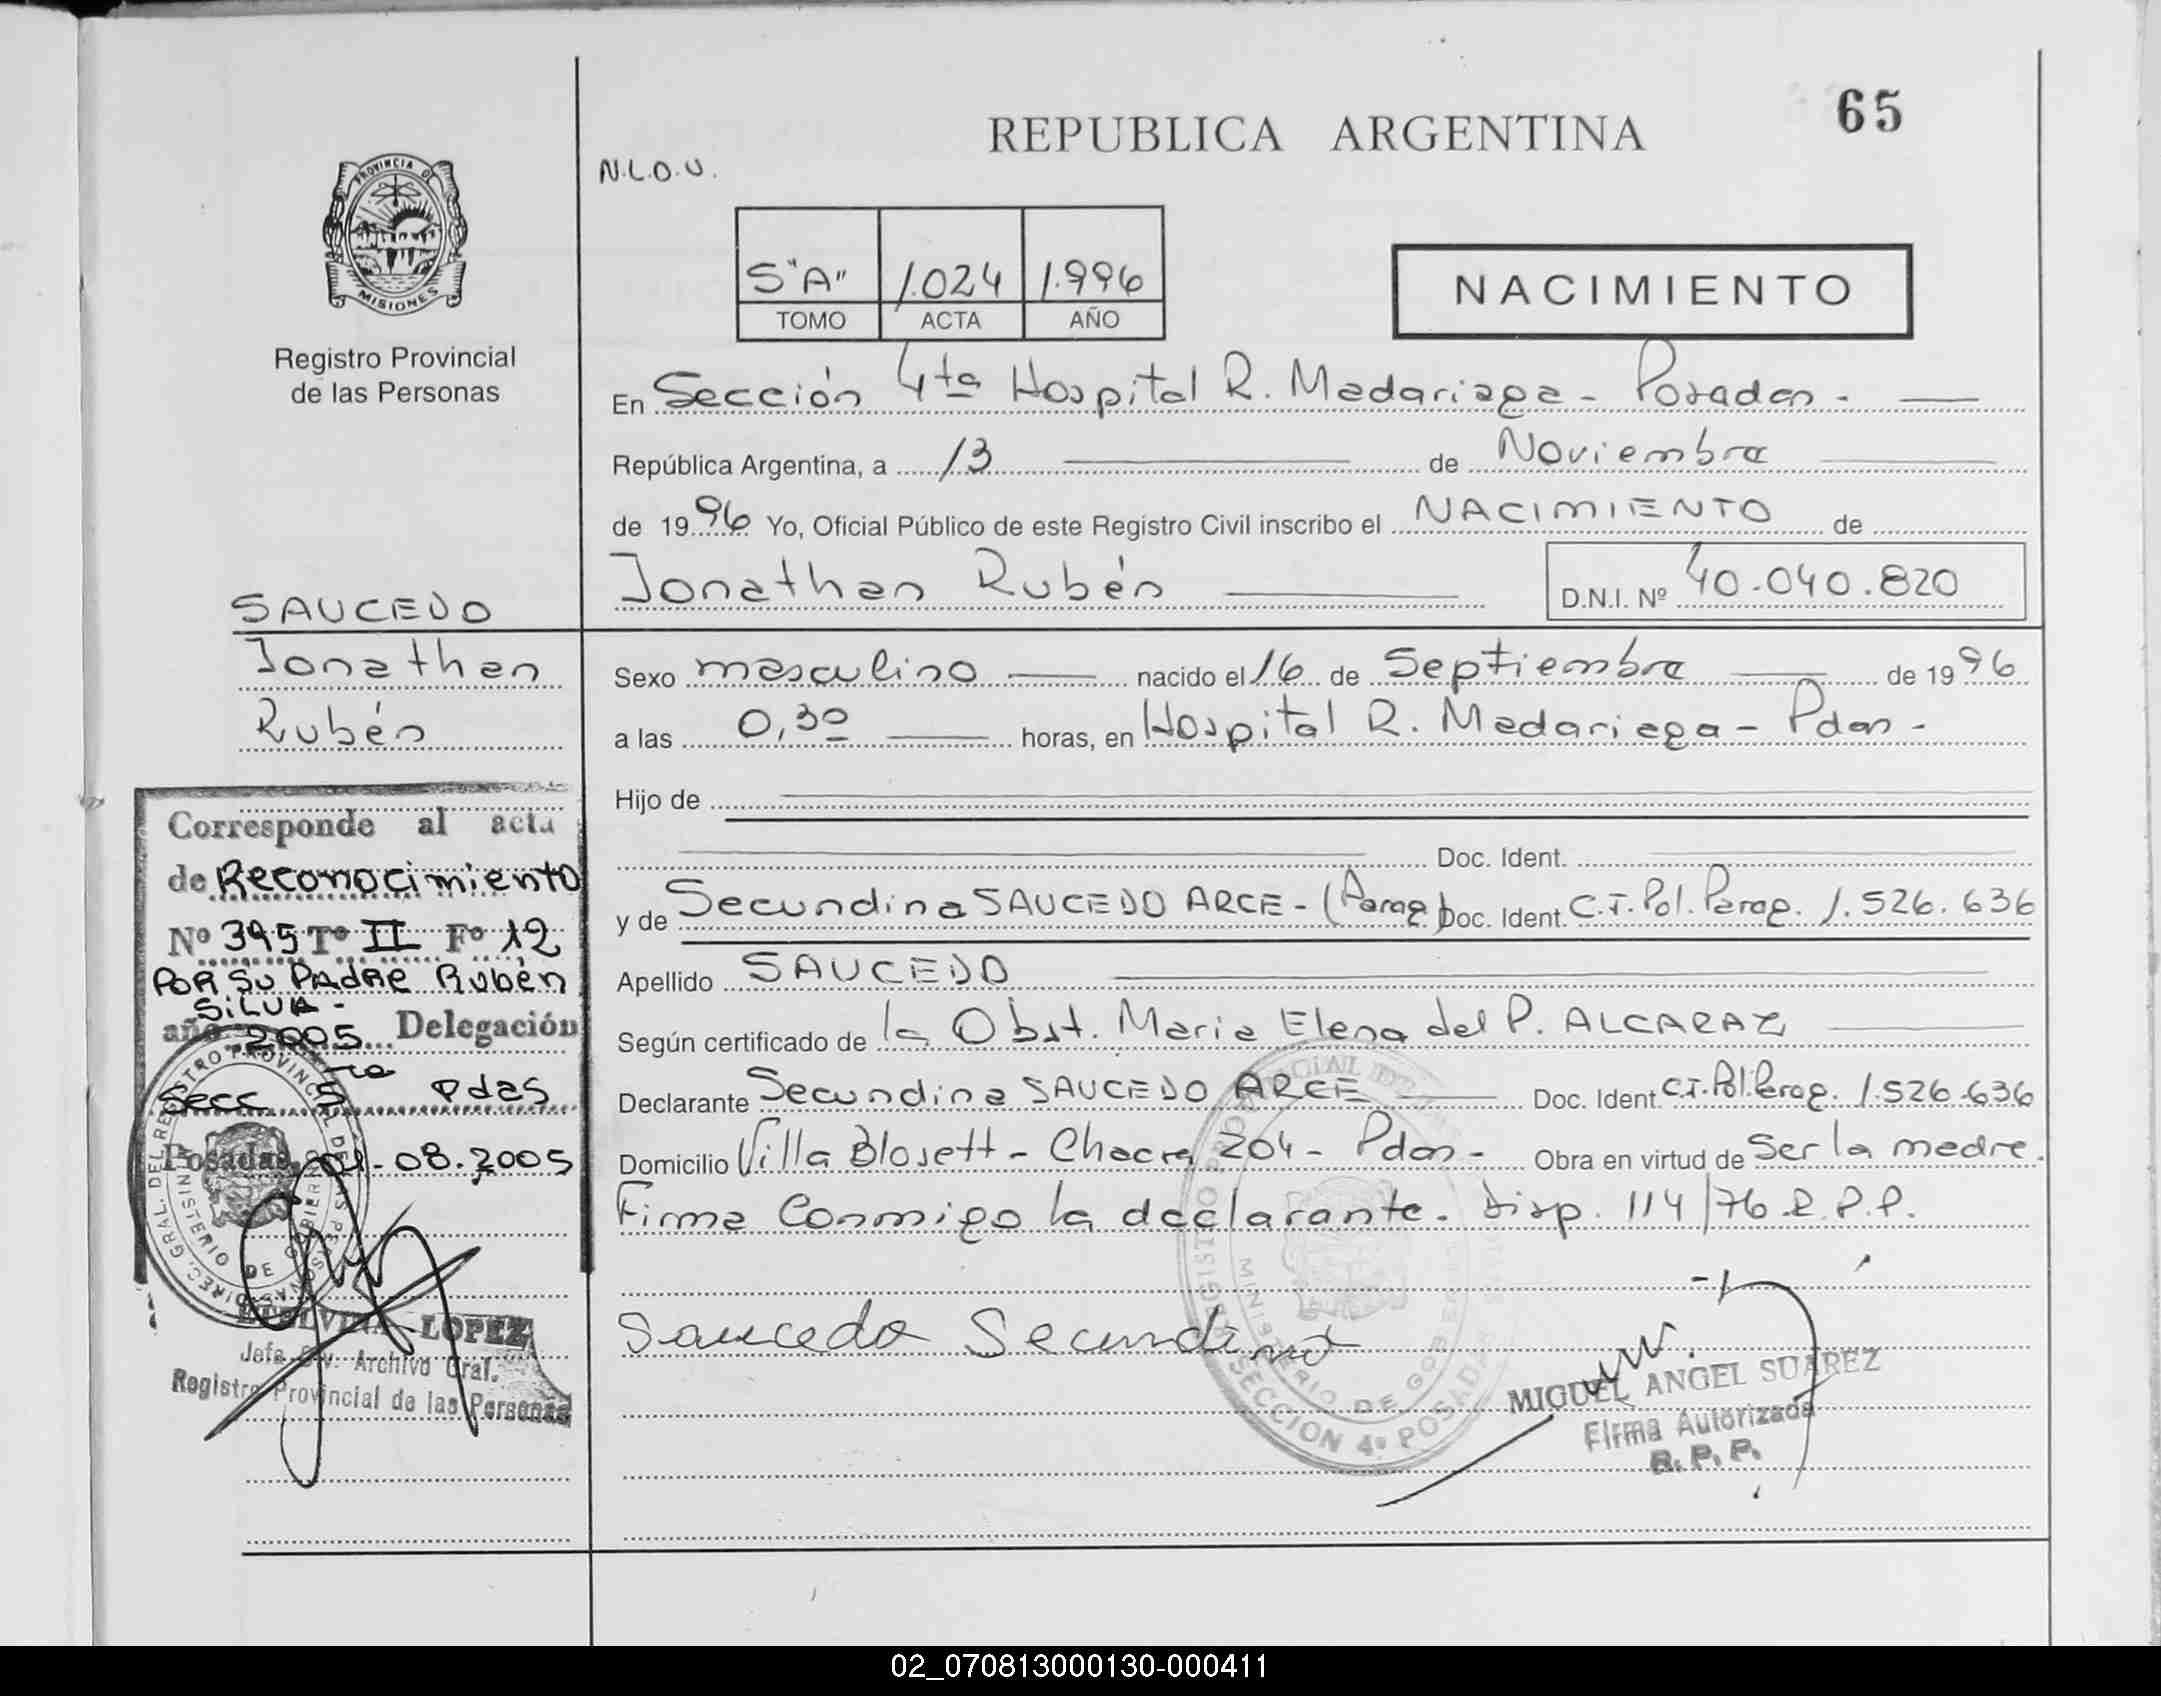 65
REPUBLICA ARGENTINA
N.L.O.U.
PROVINCIA DE
MISIONES
Registro Provincial
de las Personas
5"A" 1.024 1.996
TOMO ACTA AÑO
NACIMIENTO
En Sección 4ta Hospital R. Madariaga - Posadas -
República Argentina, a 13 de Noviembre
de 1996 Yo, Oficial Público de este Registro Civil inscribo el NACIMIENTO de
Jonathan Rubén D.N.I. Nº 40.040.820
SAUCEDO
Jonathan
Rubén
Sexo masculino nacido el 16 de Septiembre de 1996
a las 0,30 horas, en Hospital R. Madariaga - Pdas -
Hijo de
Doc. Ident.
y de Secundina SAUCEDO ARCE - (Parag.) Doc. Ident. C.I. Pol. Parag. 1.526.636
Apellido SAUCEDO
Según certificado de la Obst. Maria Elena del P. ALCARAZ
Declarante Secundina SAUCEDO ARCE Doc. Ident. C.I. Pol. Parag. 1.526.636
Domicilio Villa Blosett - Chacra 204 - Pdas - Obra en virtud de Ser la madre.
Firma Conmigo la declarante. Disp. 114/76 R.P.P.
Saucedo Secundina
MIGUEL ANGEL SUAREZ
Firma Autorizada
R. P. P.
MINISTERIO DE GOB
SECCION 4ª POSADAS
Corresponde al acta
de Reconocimiento
Nº 395 Tº II Fº 12
POR SU PADRE Rubén
SILVA -
año 2005 Delegación
Secc 5ta Pdas
Posadas, 01-08.2005
DIREC. GRAL. DEL REGISTRO PROVINCIAL DE LAS PERSONAS
MINISTERIO DE GOBIERNO
LOPEZ
Jefa Div. Archivo Gral.
Registro Provincial de las Personas
02_070813000130-000411